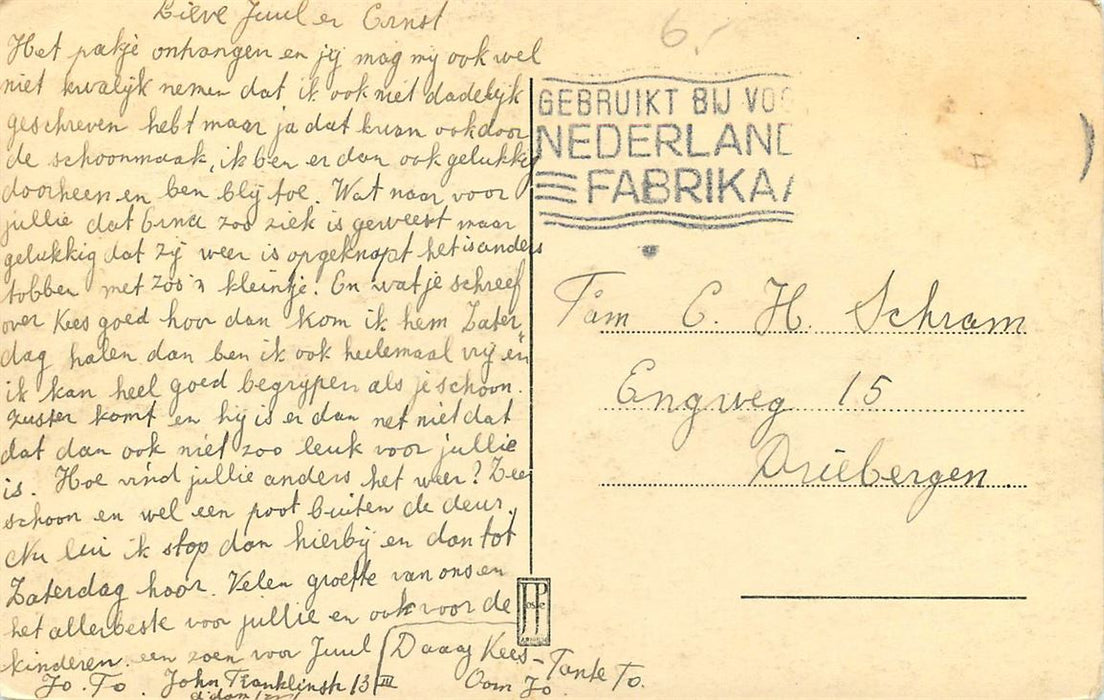 Lieve Juul en Ernst
Het pakje ontvangen en jij mag mij ook wel
niet kwalijk nemen dat ik ook niet dadelijk
geschreven hebt maar ja dat kwam ook door
de schoonmaak, ik ben er dan ook gelukkig
doorheen en ben blij toe. Wat naar voor
jullie dat Erna zoo ziek is geweest maar
gelukkig dat zij weer is opgeknapt het is anders
tobben met zoo'n kleintje! En wat je schreef
over Kees goed hoor dan kom ik hem Zater-
dag halen dan ben ik ook heelemaal vrij en
ik kan heel goed begrijpen als je schoon.
zuster komt en hij is er dan net niet dat
dat dan ook niet zoo leuk voor jullie
is. Hoe vind jullie anders het weer? Zeer
schoon en wel een poot buiten de deur.
Nu lui ik stop dan hierbij en dan tot
Zaterdag hoor. Velen groette van ons en
het allerbeste voor jullie en ook voor de
kinderen een zoen voor Juul
Jo. To. John Franklinstr 13 III
A'dam
Daaag Kees -
Tante To.
Oom Jo
6.-
GEBRUIKT BIJ VOO
NEDERLAND
FABRIKA
Fam C. H. Schram
Engweg 15
Driebergen
JosPe